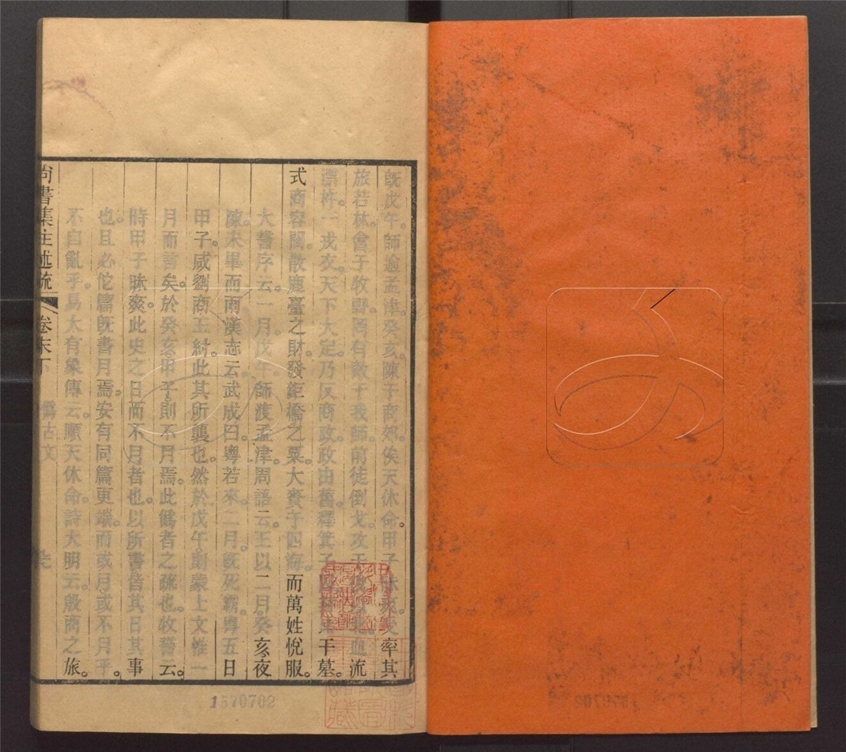 既戊午師逾孟津癸亥陳于商郊俟天休命甲子昧爽受率其
旅若林會于牧野罔有敵于我師前徒倒戈攻于後以北血流
漂杵一戎衣天下大定乃反商政政由舊釋箕子囚封比干墓
式商容閭散鹿臺之財發鉅橋之粟大賚于四海而萬姓悅服
大書序云一月戊午師渡孟津周語云王以二月癸亥夜
陳未畢而雨漢志云武成曰粵若來二月既死霸粵五日
甲子咸劉商王紂此其所襲也然於戊午則蒙上文惟一
月而言矣於癸亥甲子則不月焉此僞者之疏也牧誓云
時甲子昧爽此史之日而不月者也以所書者其日其事
也且必佗篇既書月焉安有同篇更端而或月或不月乎
不自亂乎易大有象傳云順天休命詩大明云殷商之旅
尚書集注述疏
卷末下
僞古文
1570702